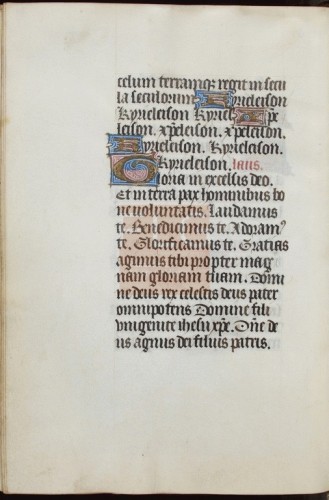 celum terramqꝫ regit in secu
la seculorum Kyrieleison
Kyrieleison Kyriel Xpe
leison. xpeleison. xpeleison.
Kyrieleison. Kyrieleison.
Kyrieleison. laus.
Gloria in excelsis deo.
Et in terra pax hominibus bo
ne voluntatis. Laudamus
te. Benedicimus te. Adoram᷒
te. Glorificamus te. Gratias
agimus tibi propter mag
nam gloriam tuam. Domi
ne deus rex celestis deus pater
omnipotens Domine fili
vnigenite ihesu xp̄e. Dn̄e de
us agnus dei filius patris.